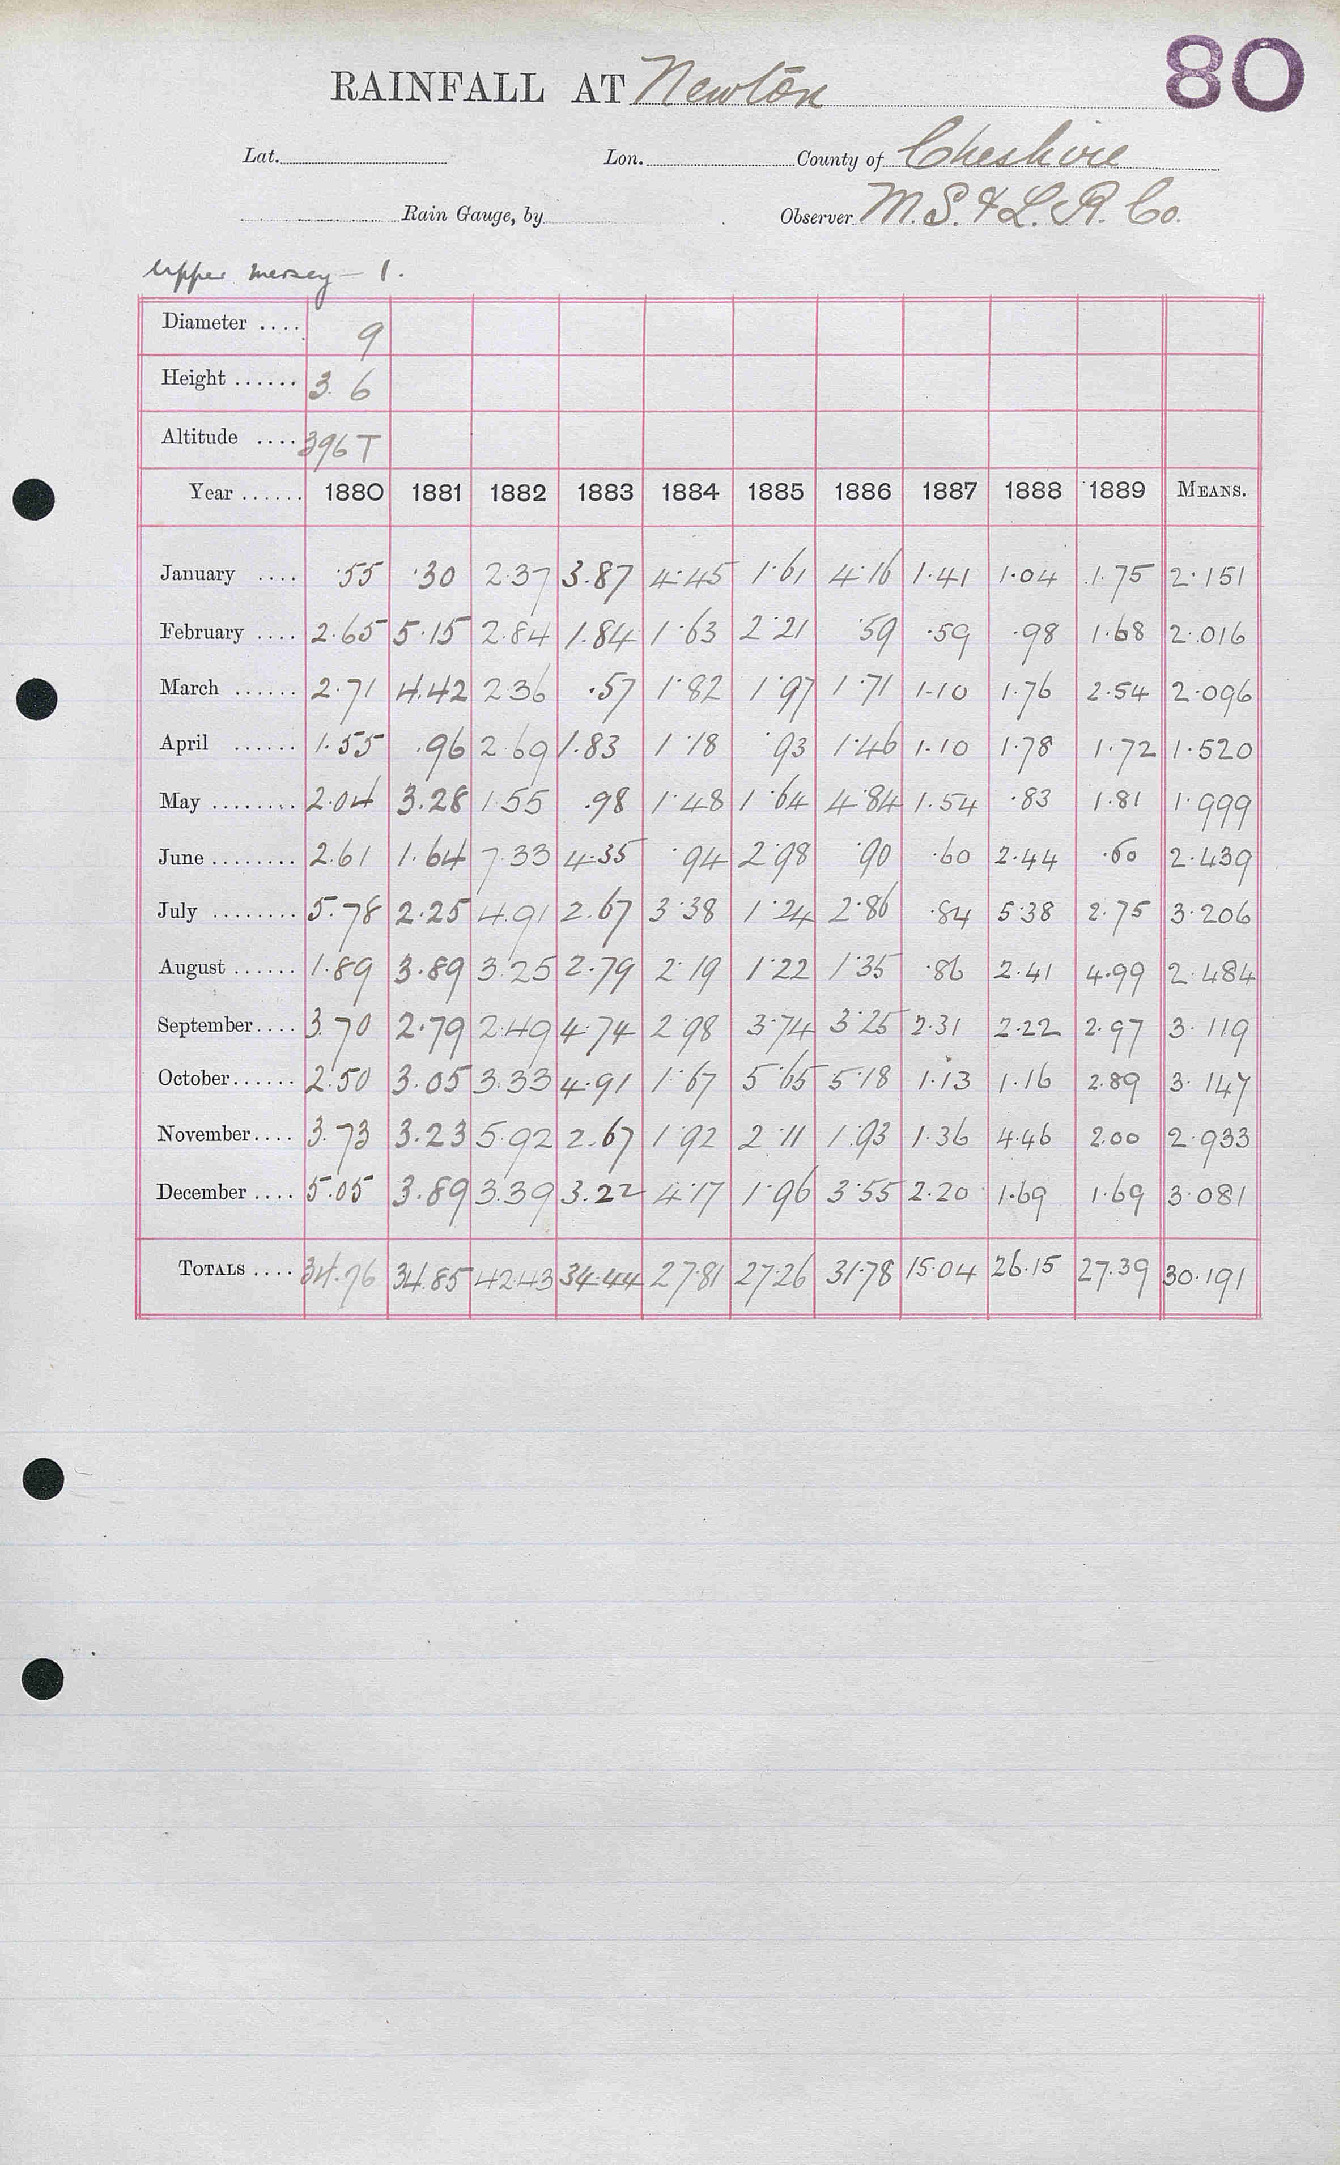 80
RAINFALL AT Newton
Lat. Lon. County of Cheshire
Rain Gauge, by Observer M. S. & L. R. Co.
Upper Mersey — 1.
Diameter .... 9
Height ...... 3 6
Altitude .... 396 T
Year ...... 1880 1881 1882 1883 1884 1885 1886 1887 1888 1889 MEANS.
January .... .55 .30 2.37 3.87 4.45 1.61 4.16 1.41 1.04 1.75 2.151
February .... 2.65 5.15 2.84 1.84 1.63 2.21 .59 .59 .98 1.68 2.016
March ...... 2.71 4.42 2.36 .57 1.82 1.97 1.71 1.10 1.76 2.54 2.096
April ...... 1.55 .96 2.69 1.83 1.18 .93 1.46 1.10 1.78 1.72 1.520
May ........ 2.04 3.28 1.55 .98 1.48 1.64 4.84 1.54 .83 1.81 1.999
June ........ 2.61 1.64 7.33 4.35 .94 2.98 .90 .60 2.44 .60 2.439
July ........ 5.78 2.25 4.91 2.67 3.38 1.24 2.86 .84 5.38 2.75 3.206
August ...... 1.89 3.89 3.25 2.79 2.19 1.22 1.35 .86 2.41 4.99 2.484
September.... 3.70 2.79 2.49 4.74 2.98 3.74 3.25 2.31 2.22 2.97 3.119
October...... 2.50 3.05 3.33 4.91 1.67 5.65 5.18 1.13 1.16 2.89 3.147
November.... 3.73 3.23 5.92 2.67 1.92 2.11 1.93 1.36 4.46 2.00 2.933
December .... 5.05 3.89 3.39 3.22 4.17 1.96 3.55 2.20 1.69 1.69 3.081
TOTALS .... 34.76 34.85 42.43 34.44 27.81 27.26 31.78 15.04 26.15 27.39 30.191